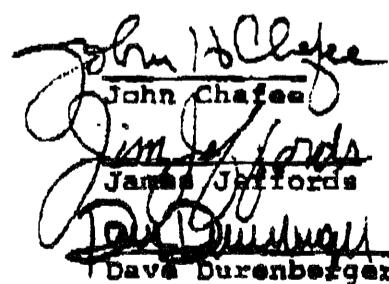 John H Chafee
John Chafee
Jim Jeffords
James Jeffords
Dave Durenberger
Dave Durenberger